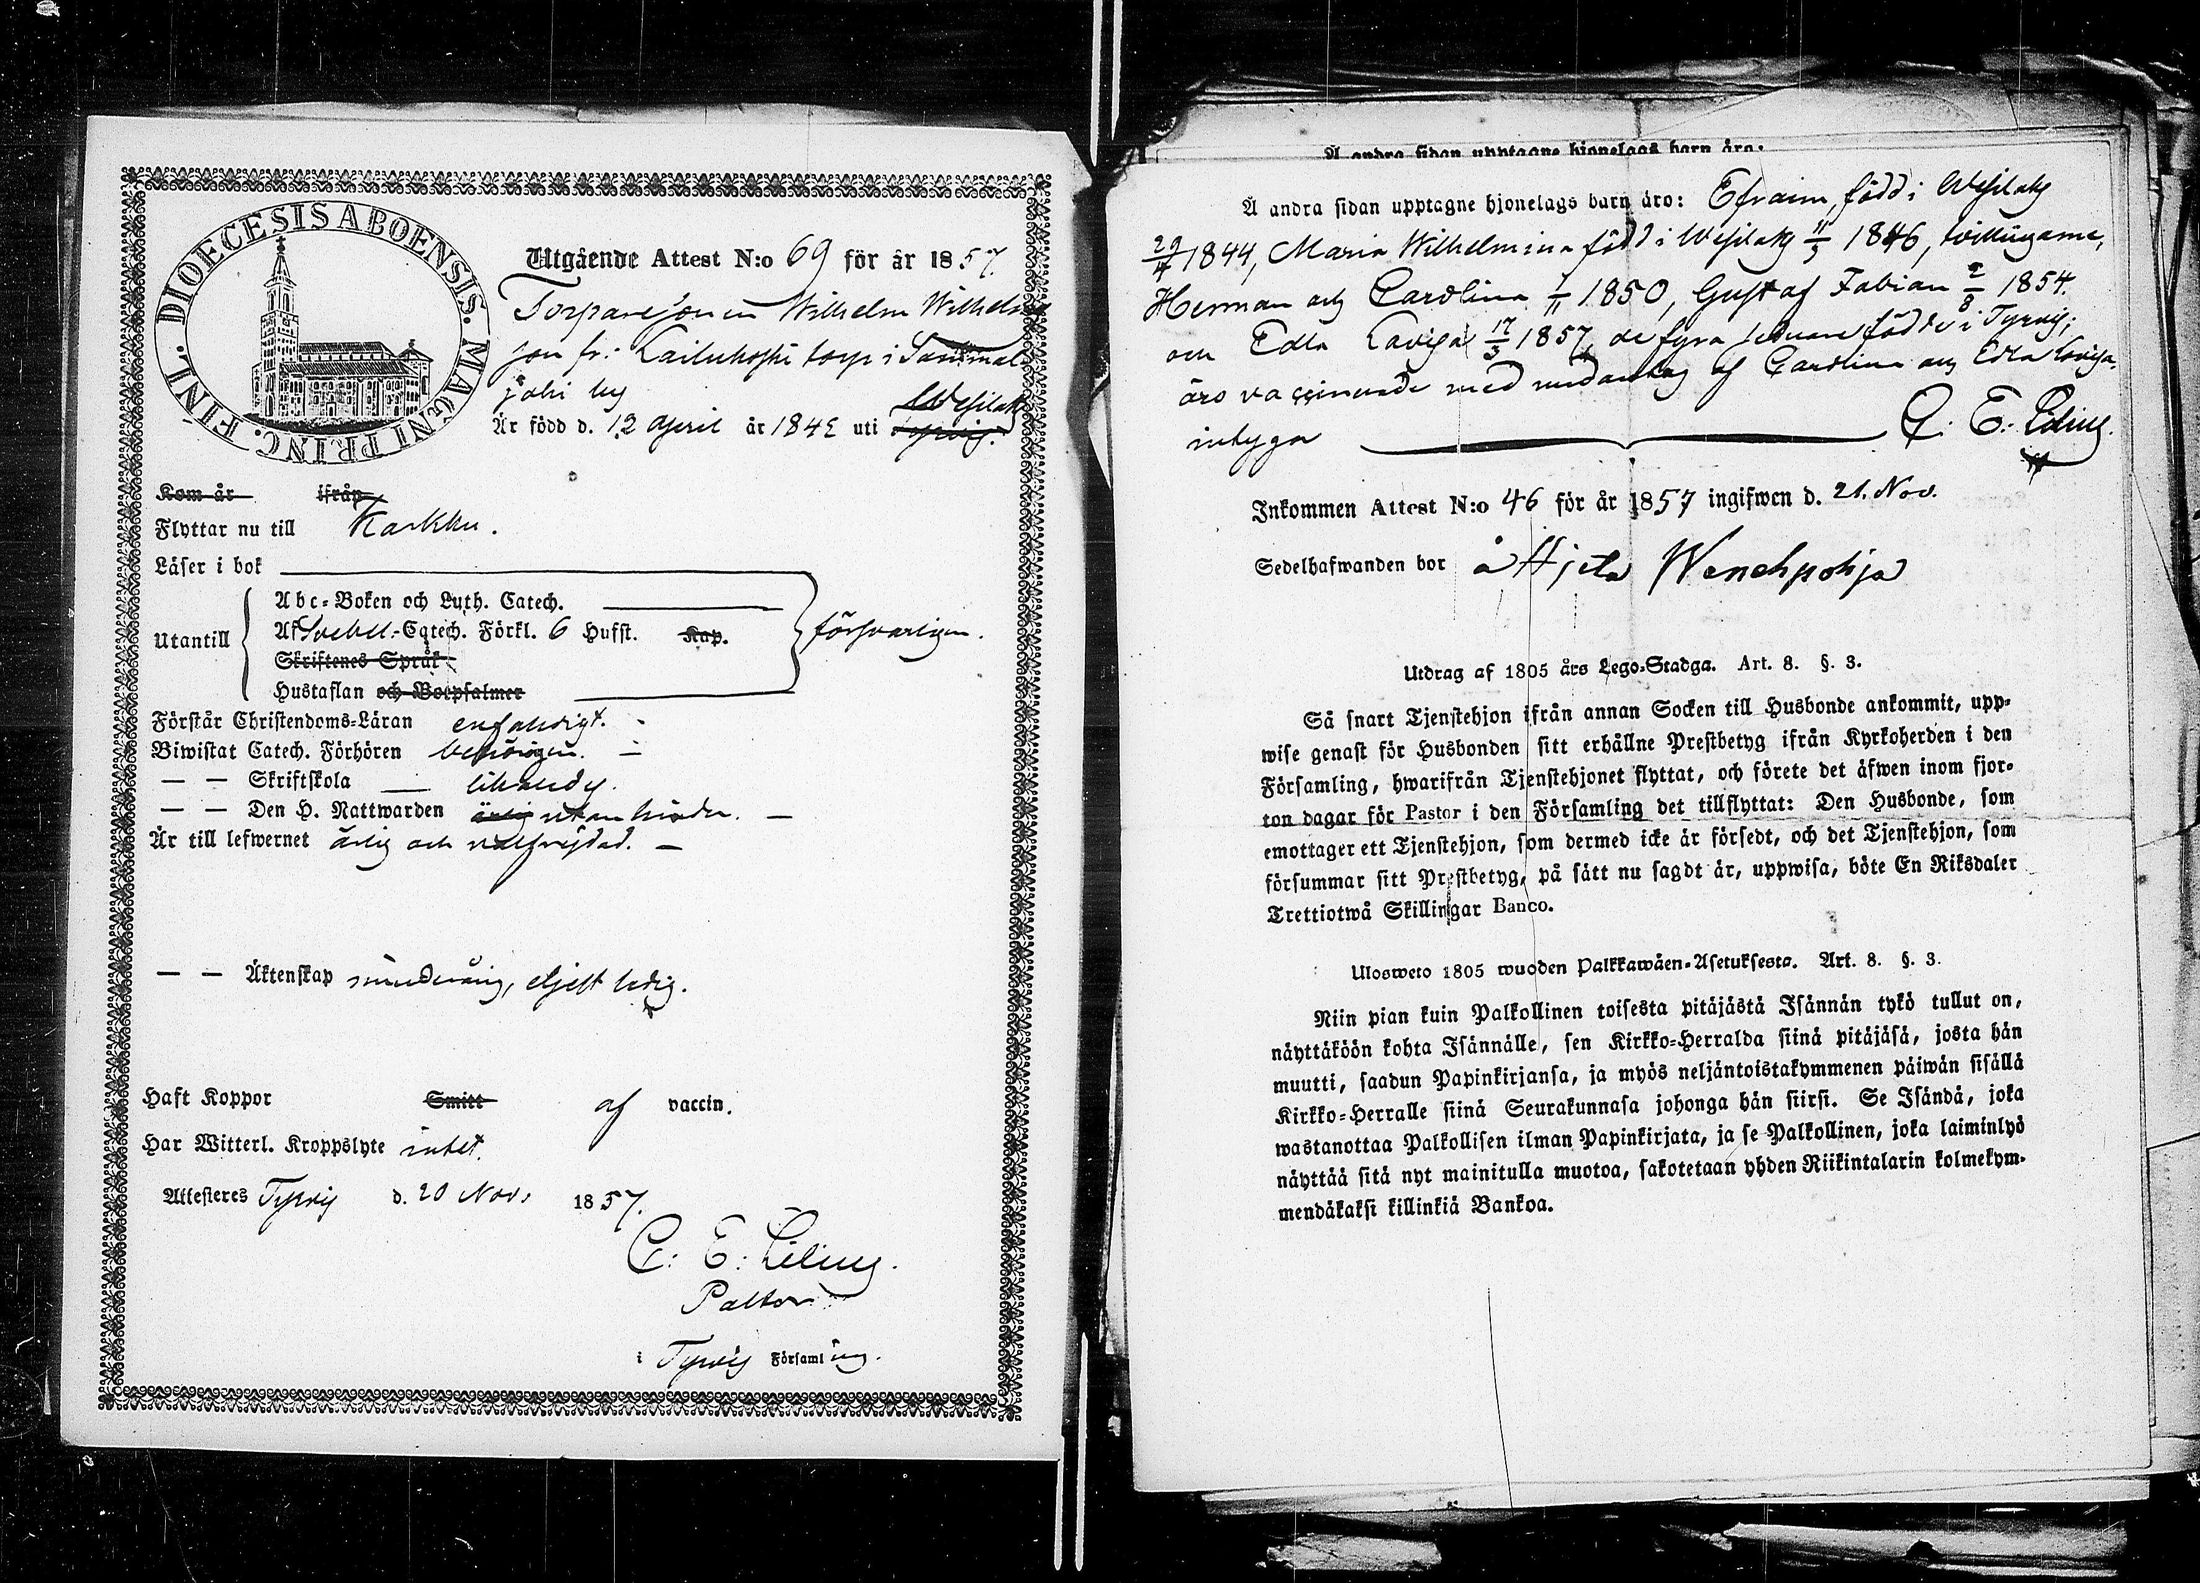 DIOECESIS ABOENSIS. MAGNI PRINC. FINL.
Utgående Attest N:o 69 för år 1857.
Torparesonen Wilhelm Wilhelms
son fr: Lailukoski torp i Sammal
joki by
Wesilaks
Är född d. 12 April år 1842 uti Tyrvis.
Kom år ifrån
Flyttar nu till Karkku.
Läser i bok
Utantill
Abc-Boken och Luth. Catech.
Af Svebel.-Catech. Förkl. 6 Hufst. Kap.
försvarligen.
Skriftenes Språk
Hustaflan och Botpsalmer
Förstår Christendoms-Läran enfaldigt.
Biwistat Catech. Förhören behörigen. —
— — Skriftskola — likaledes.
— — Den H. Nattwarden ärlig utan hinder. —
Är till lefwernet ärlig och välfrejdad. —
— — Äktenskap minderårig, eljest ledig.
Haft Koppor Smitt af vaccin.
Har Witterl. Kroppslyte intet.
Attesteres Tyrvis d. 20 Nov. 1857.
C: E: Lilius.
Pastor
i Tyrvis Församling.
Å andra sidan upptagne hjonelags barn äro:
Å andra sidan upptagne hjonelags barn äro: Efraim, född i Wesilaks
29/4 1844, Maria Wilhelmina född i Wesilaks 11/5 1846, tvillingarne,
Herman och Carolina 1/11 1850, Gustaf Fabian 2/8 1854.
och Edla Lovisa 17/3 1857, de fyra sednare födde i Tyrvis;
äro vaccinerade med undantag af Carolina och Edla Lovisa.
intygar C: E: Lilius.
Inkommen Attest N:o 46 för år 1857 ingifwen d. 21. Nov.
Sedelhafwanden bor å Hjeta Wenehpohja
Utdrag af 1805 års Lego-Stadga. Art. 8. §. 3.
Så snart Tjenstehjon ifrån annan Socken till Husbonde ankommit, upp-
wise genast för Husbonden sitt erhållne Prestbetyg ifrån Kyrkoherden i den
Församling, hwarifrån Tjenstehjonet flyttat, och förete det äfwen inom fjor-
ton dagar för Pastor i den Församling det tillflyttat: Den Husbonde, som
emottager ett Tjenstehjon, som dermed icke är försedt, och det Tjenstehjon, som
försummar sitt Prestbetyg, på sätt nu sagdt är, uppwisa, böte En Riksdaler
Trettiotwå Skillingar Banco.
Ulosweto 1805 wuoden Palkkawäen-Asetuksesta. Art. 8. §. 3.
Niin pian kuin Palkollinen toisesta pitäjästä Isännän tykö tullut on,
näyttäköön kohta Isännälle, sen Kirkko-Herralda siinä pitäjäsä, josta hän
muutti, saadun Papinkirjansa, ja myös neljäntoistakymmenen päiwän sisällä
Kirkko-Herralle siinä Seurakunnasa johonga hän siirsi. Se Isändä, joka
wastanottaa Palkollisen ilman Papinkirjata, ja se Palkollinen, joka laiminlyö
näyttää sitä nyt mainitulla muotoa, sakotetaan yhden Riikintalarin kolmekym-
mendäkaksi killinkiä Bankoa.